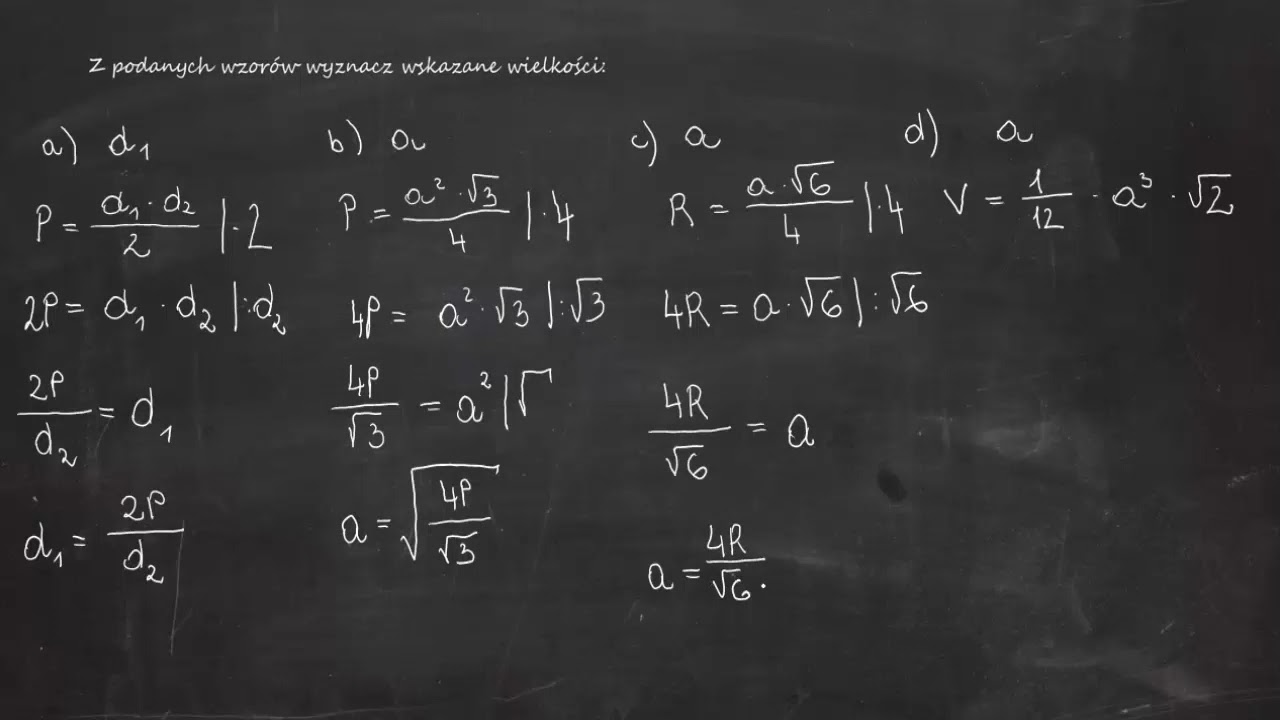 Z podanych wzorów wyznacz wskazane wielkości:
a) d₁
P = (d₁ · d₂)/2 | · 2
2P = d₁ · d₂ | : d₂
2P/d₂ = d₁
d₁ = 2P/d₂
b) a
P = (a² · √3)/4 | · 4
4P = a² · √3 | : √3
4P/√3 = a² | √
a = √(4P/√3)
c) a
R = (a · √6)/4 | · 4
4R = a · √6 | : √6
4R/√6 = a
a = 4R/√6 ·
d) a
V = 1/12 · a³ · √2